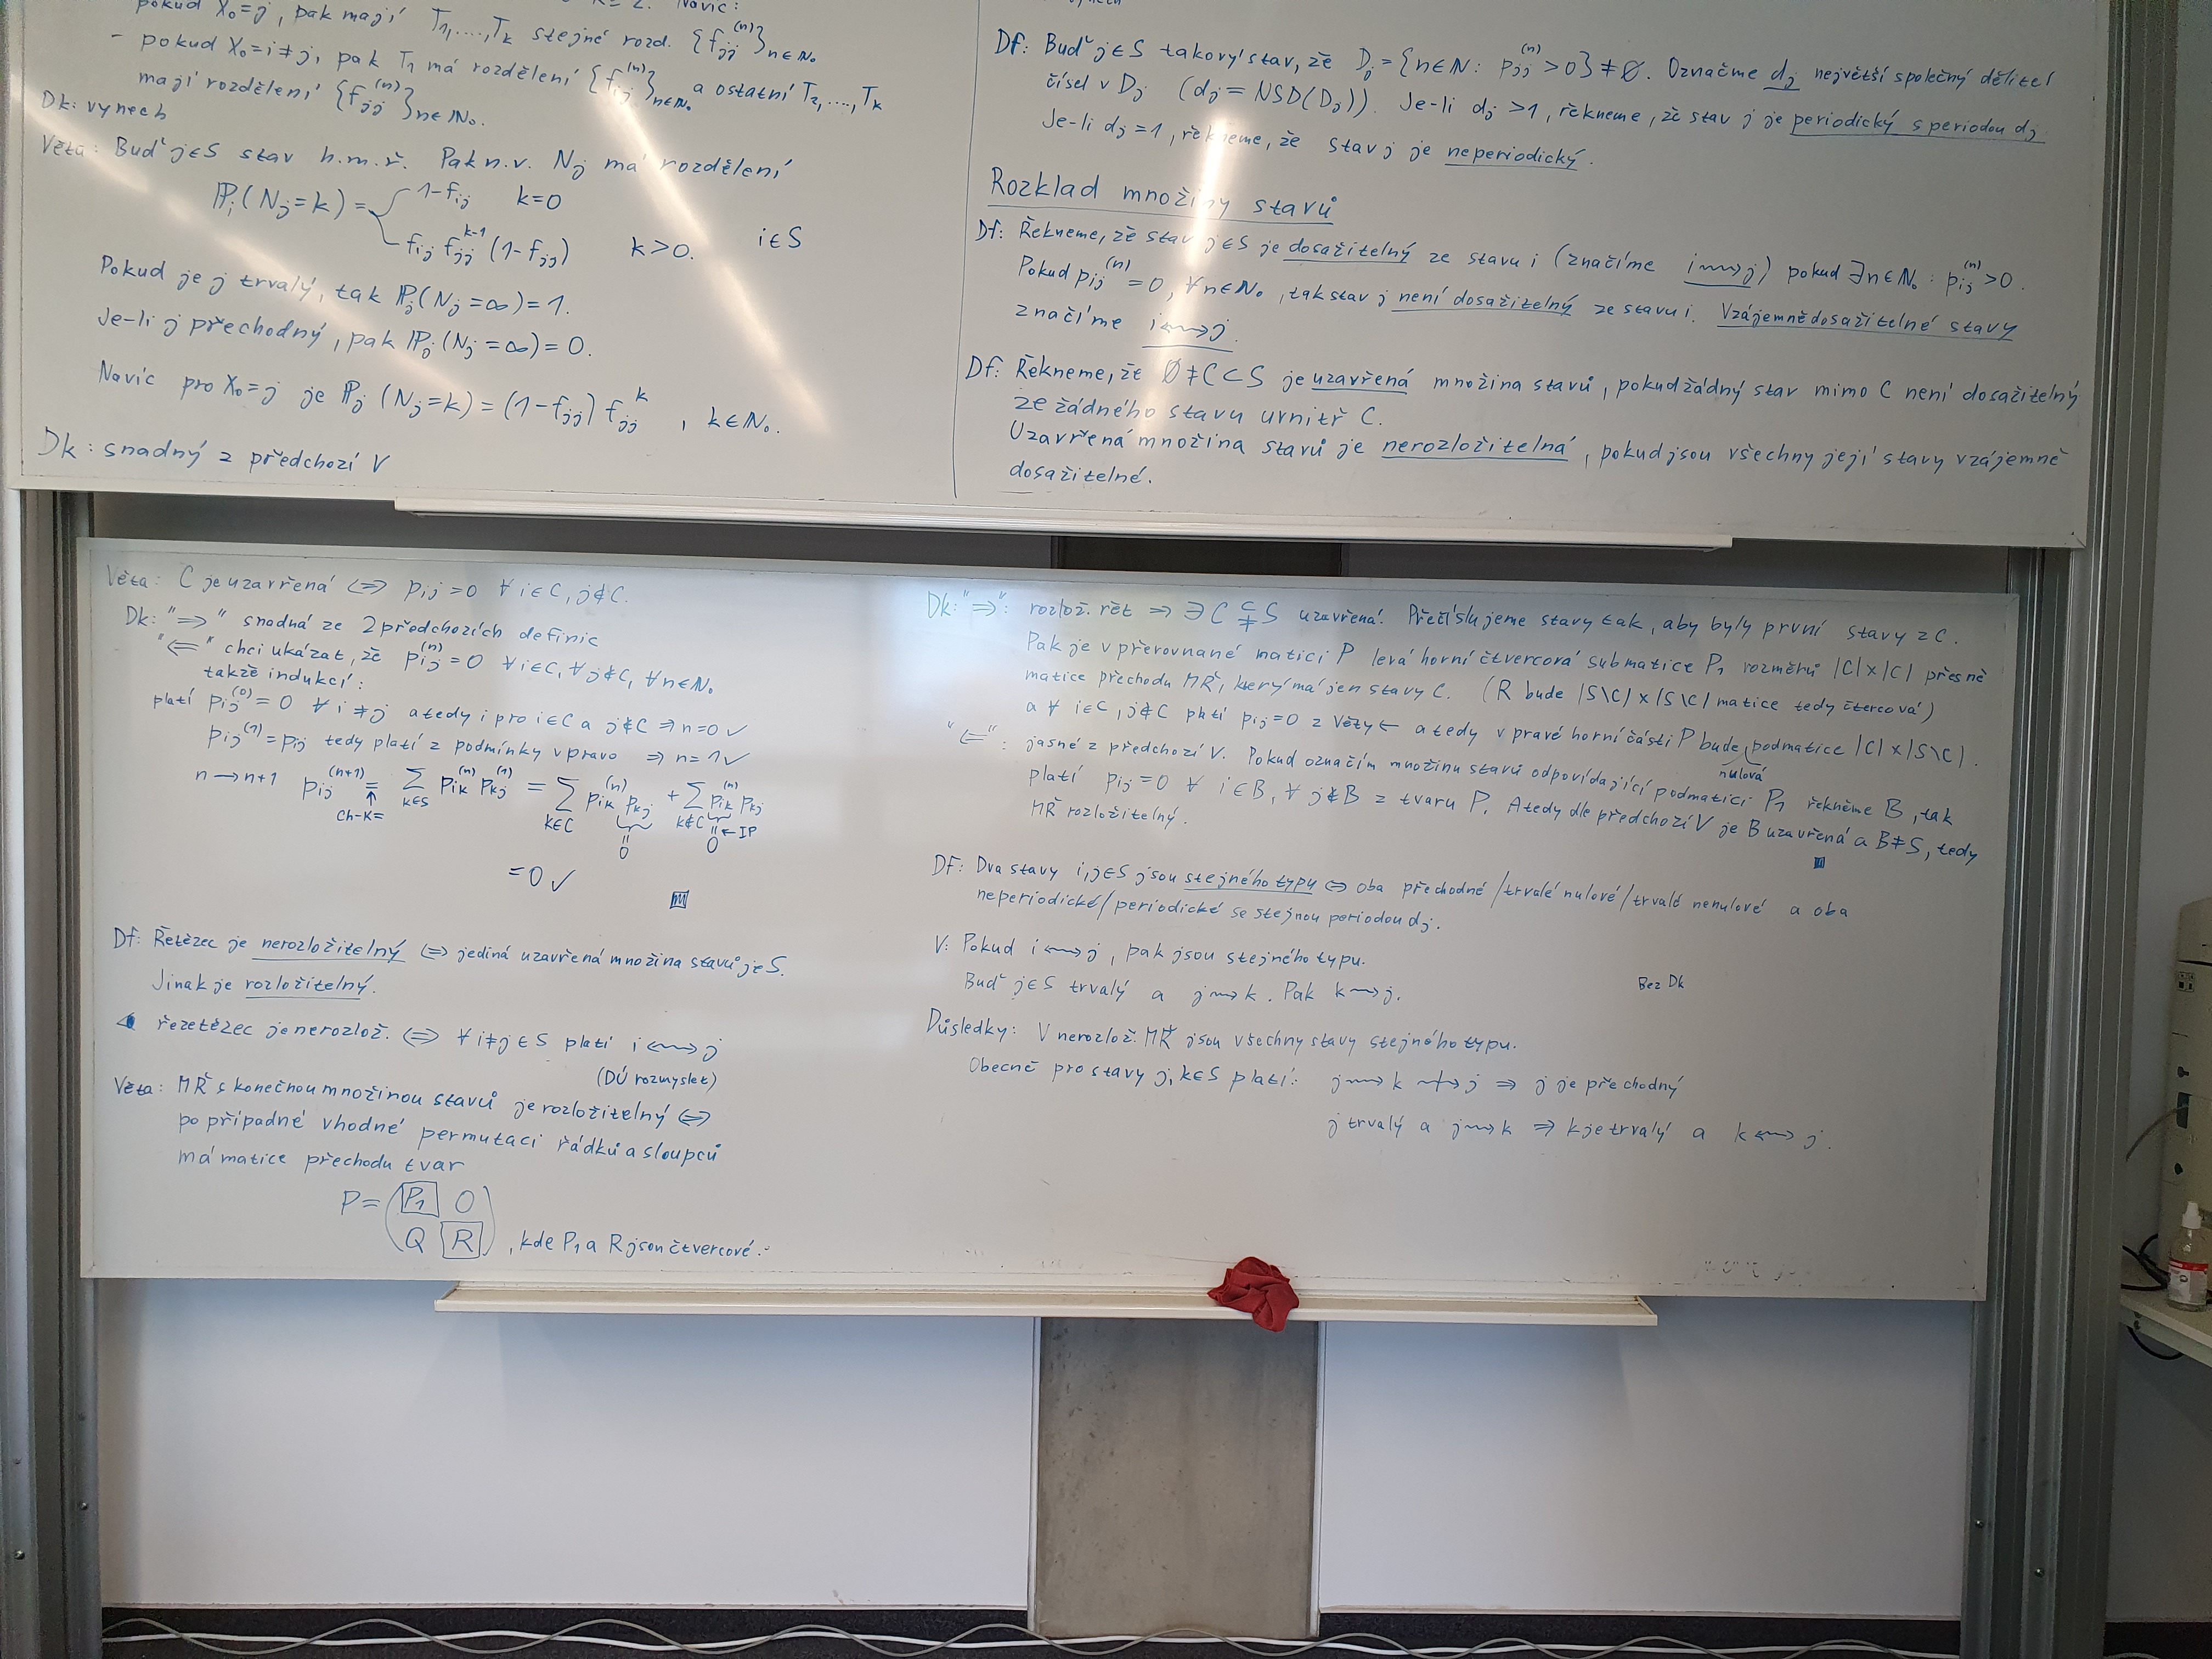 pokud X₀=j, pak mají T₁,....,Tₖ stejné rozd. {fⱼⱼ⁽ⁿ⁾}ₙ∈ℕ₀
- pokud X₀=i≠j, pak T₁ má rozdělení {fᵢⱼ⁽ⁿ⁾}ₙ∈ℕ₀ a ostatní T₂,....,Tₖ
mají rozdělení {fⱼⱼ⁽ⁿ⁾}ₙ∈ℕ₀.
Dk: vynech
Věta: Buď j∈S stav h.m.ř. Pak n.v. Nⱼ má rozdělení
ℙᵢ(Nⱼ=k) = 1-fᵢⱼ k=0
fᵢⱼ fⱼⱼᵏ⁻¹ (1-fⱼⱼ) k>0. i∈S
Pokud je j trvalý, tak ℙⱼ(Nⱼ=∞)=1.
Je-li j přechodný, pak ℙⱼ(Nⱼ=∞)=0.
Navíc pro X₀=j je ℙⱼ(Nⱼ=k) = (1-fⱼⱼ) fⱼⱼᵏ , k∈ℕ₀.
Dk: snadný z předchozí V
Df: Buď j∈S takový stav, že Dⱼ={n∈ℕ: pⱼⱼ⁽ⁿ⁾>0}≠∅. Označme dⱼ největší společný dělitel
čísel v Dⱼ (dⱼ=NSD(Dⱼ)). Je-li dⱼ>1, řekneme, že stav j je periodický s periodou dⱼ
Je-li dⱼ=1, řekneme, že stav j je neperiodický.
Rozklad množiny stavů
Df: Řekneme, že stav j∈S je dosažitelný ze stavu i (značíme i⇝j) pokud ∃n∈ℕ₀: pᵢⱼ⁽ⁿ⁾>0.
Pokud pᵢⱼ⁽ⁿ⁾=0, ∀n∈ℕ₀, tak stav j není dosažitelný ze stavu i. Vzájemně dosažitelné stavy
značíme i↭j.
Df: Řekneme, že ∅≠C⊂S je uzavřená množina stavů, pokud žádný stav mimo C není dosažitelný
ze žádného stavu uvnitř C.
Uzavřená množina stavů je nerozložitelná, pokud jsou všechny její stavy vzájemně
dosažitelné.
Věta: C je uzavřená ⇔ pᵢⱼ=0 ∀i∈C, j∉C.
Dk: "⇒" snadná ze 2 předchozích definic
"⇐" chci ukázat, že pᵢⱼ⁽ⁿ⁾=0 ∀i∈C, ∀j∉C, ∀n∈ℕ₀
takže indukcí:
platí pᵢⱼ⁽⁰⁾=0 ∀i≠j a tedy i pro i∈C a j∉C ⇒ n=0 ✓
pᵢⱼ⁽¹⁾=pᵢⱼ tedy platí z podmínky vpravo ⇒ n=1 ✓
n→n+1 pᵢⱼ⁽ⁿ⁺¹⁾ = ∑ₖ∈S pᵢₖ⁽ⁿ⁾ pₖⱼ⁽¹⁾ = ∑ₖ∈C pᵢₖ⁽ⁿ⁾ pₖⱼ + ∑ₖ∉C pᵢₖ⁽ⁿ⁾ pₖⱼ
↑ Ch-K= =0 =0 ← IP
=0 ✓
Df: Řetězec je nerozložitelný ⇔ jediná uzavřená množina stavů je S.
Jinak je rozložitelný.
řezetězec je nerozlož. ⇔ ∀i≠j∈S platí i↭j
(DÚ rozmyslet)
Věta: MŘ s konečnou množinou stavů je rozložitelný ⇔
po případné vhodné permutaci řádků a sloupců
má matice přechodu tvar
P= (P₁ 0
Q R) , kde P₁ a R json čtvercové.
Dk: "⇒": rozlož. řet ⇒ ∃C⊊S uzavřená. Přečíslujeme stavy tak, aby byly první stavy z C.
Pak je v přerovnané matici P levá horní čtvercová submatice P₁ rozměrů |C|×|C| přesně
matice přechodu MŘ, který má jen stavy C. (R bude |S\C|×|S\C| matice tedy čtercová)
a ∀ i∈C, j∉C platí pᵢⱼ=0 z Věty ← a tedy v pravé horní části P bude podmatice |C|×|S\C|.
nulová
"⇐": jasné z předchozí V. Pokud označím množinu stavů odpovídající podmatici P₁ řekněme B, tak
platí pᵢⱼ=0 ∀ i∈B, ∀j∉B z tvaru P. A tedy dle předchozí V je B uzavřená a B≠S, tedy
MŘ rozložitelný.
Df: Dva stavy i,j∈S jsou stejného typu ⇔ oba přechodné/trvalé nulové/trvalé nenulové a oba
neperiodické/periodické se stejnou periodou dⱼ.
V: Pokud i↭j, pak jsou stejného typu.
Buď j∈S trvalý a j⇝k. Pak k⇝j.
Bez Dk
Důsledky: V nerozlož. MŘ jsou všechny stavy stejného typu.
Obecně pro stavy j,k∈S platí: j⇝k ⇝̸ j ⇒ j je přechodný
j trvalý a j⇝k ⇒ k je trvalý a k↭j.